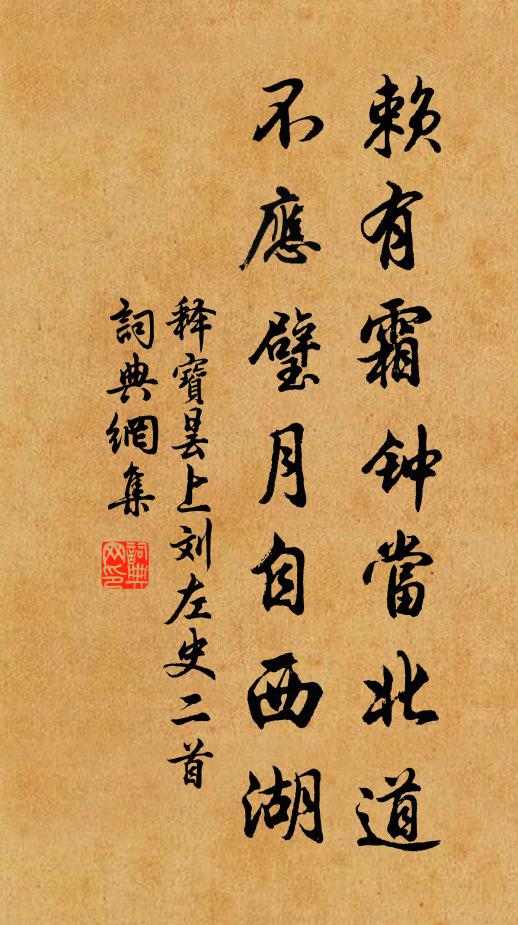 赖有霜钟當北道
不應璧月自西湖
释寶昙上刘左史二首
詞典網集
詞典网印